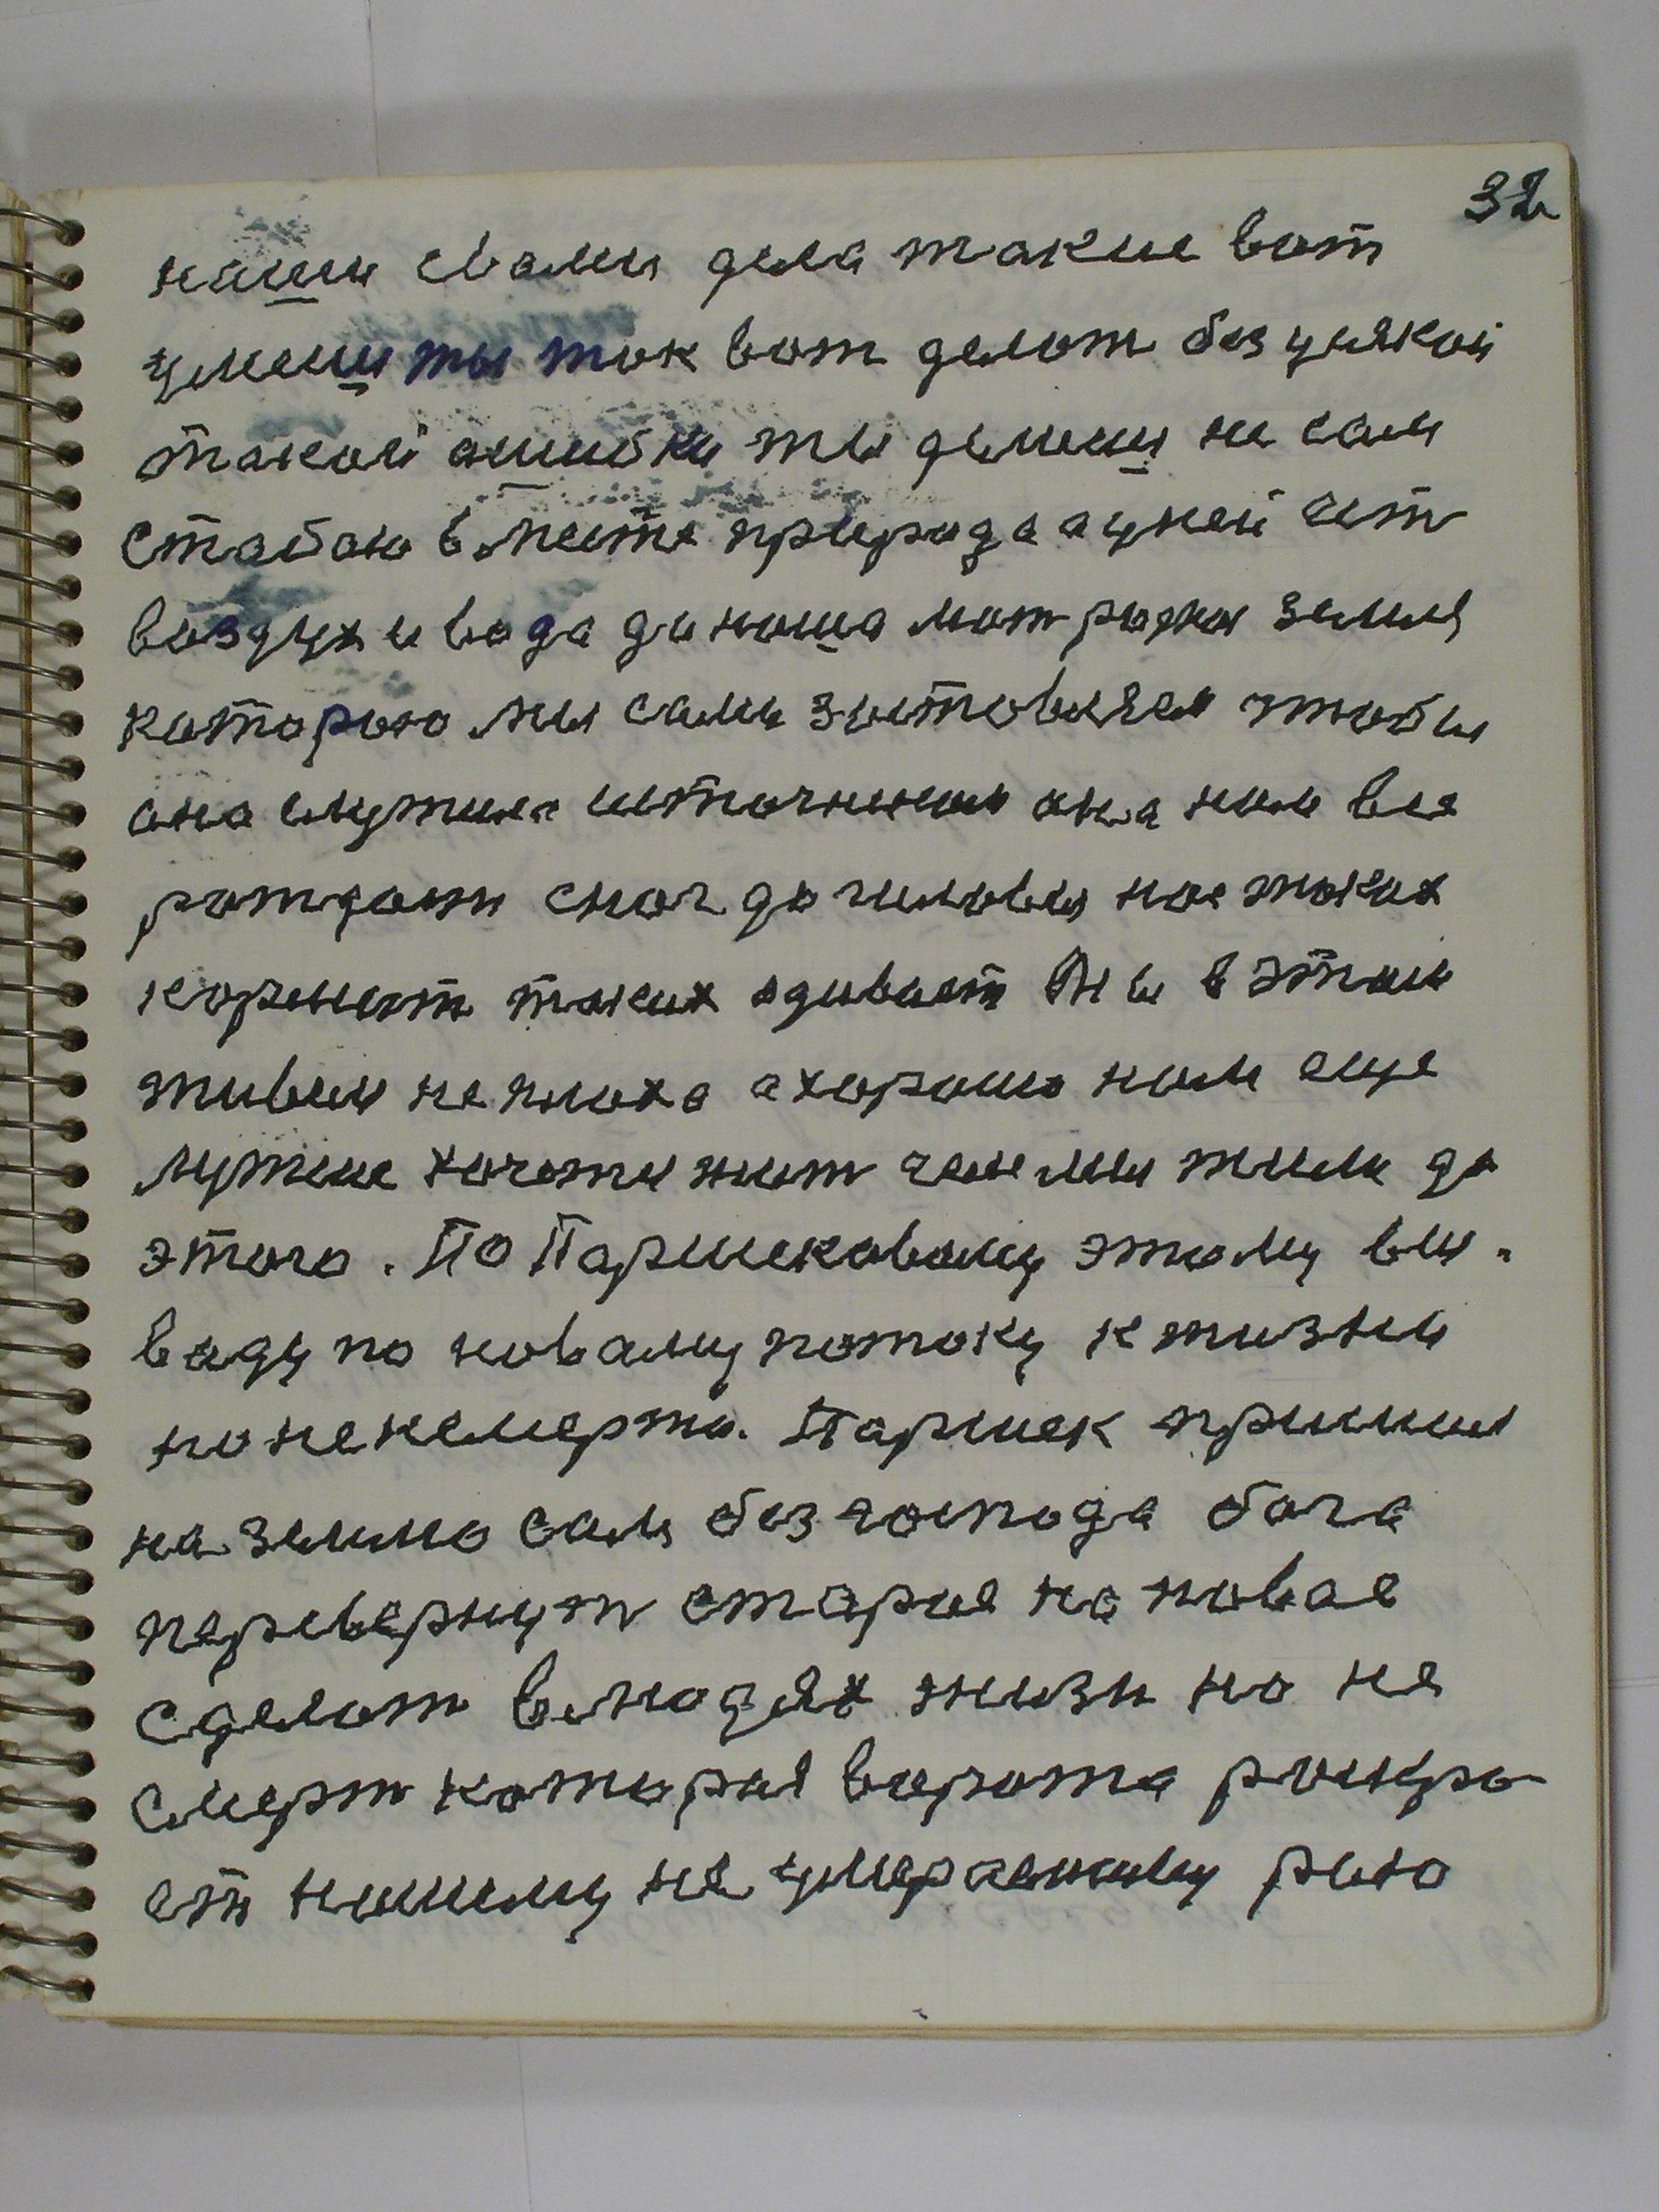 32
наши свами дела такие вот
умеиш ты так вот делат без уиякой
такои ашибки ты делаиш не сам
стабою вместе природа а уней ест
воздух и вада да наша мат родная земля
каторою мы сами зыставляем чтобы
ана служила источником ана нам все
раждаит снаг да галовы нас таких
кормит таких одивает Мы в этом
живем не плоха а хорашо нам еще
лутше хочется жит чем мы жили до
этого. По Паршековому этому вы.
ваду по новаму потоку к жизни
но не к смерти. Паршек пришил
на землю сам без господа бога
перевернут старое на новае
сделат влюдях жизн но не
смерт которая варота раскро
ет нашему не умераюшиму раю